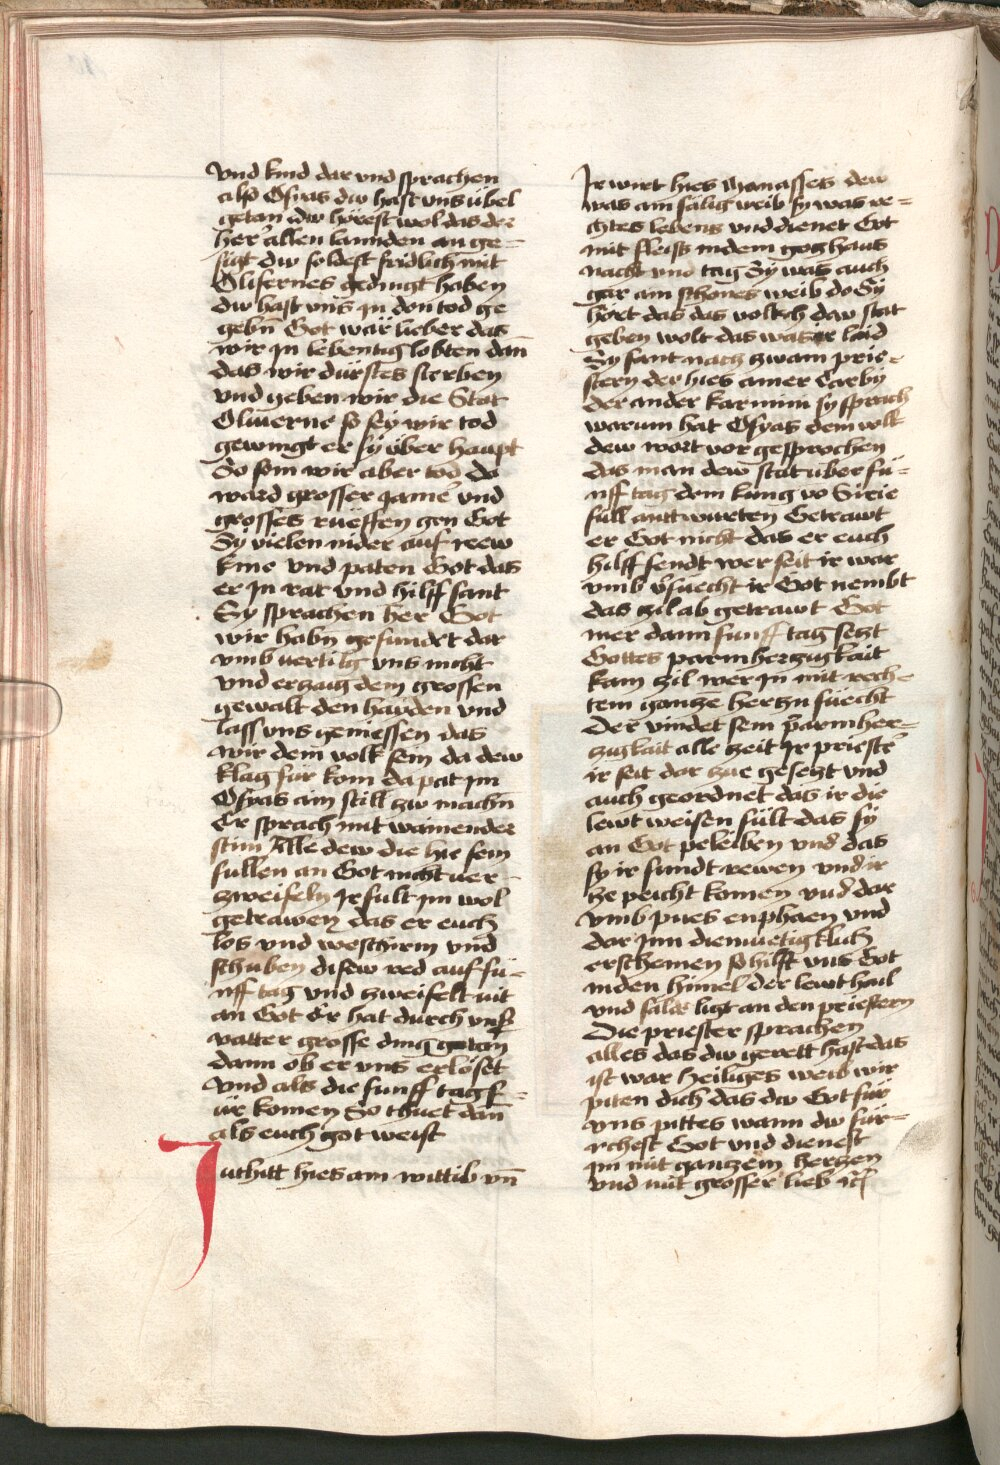 vnd kind dar vnd sprachen
also Osyas dw hast vns übel
getan dw hörest wol das der
her allen lannden an ge=
sigt dw soldest fridlich mit
Olifernes gedingt haben
dw hast vns in den tod ge
gebn Got wär lieber das
wir in lebentig lobten dan̄
das wir durstes sterben
vnd geben wir die Stat
Oliuerne so sey wir tod
gewingt er sy über haupt
So sein wir aber tod da
ward grosser jamer vnd
grosses rueffen gen Got
Sy vielen nider auf reew
knie vnd paten Got das
er in rat vnd hilff sant
Sy sprachen her Got
wir habn gesundet dar
vmb vertilig vns nicht
vnd erzaig dem grossen
gewalt den hayden vnd
lass vns geniessen das
wir dein volk sein da dew
klag für kom da pat im
Osyas ain still zw machn
Er sprach mit wainender
stim Alle dew die hie sein
sullen an Got nicht ver=
zweifeln Ir sult im wol
getrawen das er euch
los vnd weschirm vnd
schuben disew red auf fü=
nff tag vnd zweifelt nit
an Got Er hat durch vnß
vatter grosse ding getan
dann ob er vns erlöset
Vnd als die funff tag f=
ür komen So thuet dan̄
als euch got weist
Juthitt hies ain wittib vn̄
Ir wirt hies Manasses dew
was ain sälig weib sy was re=
chtes lebens vnd dienet Got
mit fleiss in dem goczhaus
nacht vnd tag Sy was auch
gar ain schones weib do Sy
hört das das volkch daw stat
geben wolt das was ir laid
Sy sant nach zwain prie=
stern der hies ainer Carby
der ander karmini sy sprach
warum hat Osyas dem volk
dew wort vor gesprochen
das man dew stat über fü=
nff tag dem kung vo Sirie
sull anttwurten Getrawt
er Got nicht das er euch
hilff sendt wer seit ir war
vmb v̄suecht ir Got nembt
das zil ab getrawt Got
mer dann funff tag seczt
Gottes parmherzugkait
kain zil wer in mit rech=
tem ganczē herczn suecht
Der vindet sein parmher=
zugkait alle zeit Ir priestē
ir seit dar zue geseczt vnd
auch geordnet das ir die
lewt weisen sült das sy
an Got peleiben vnd das
sy ir sundt rewen vnd ir
ze peicht komen vnd dar
vmb pues enphaen vnd
dar inn diemuetigklich
erscheinen so hilft vns Got
in den himel der lewt hail
vnd sälde ligt an den priestern
Die priester sprachen
alles das dw gerett hast das
ist war Heiliges weib wir
piten dich das dw Got für
vns pittes wann dw für=
rchest Got vnd dienest
im mit ganczem herczen
vnd mit grosser lieb ꝛcꝭ